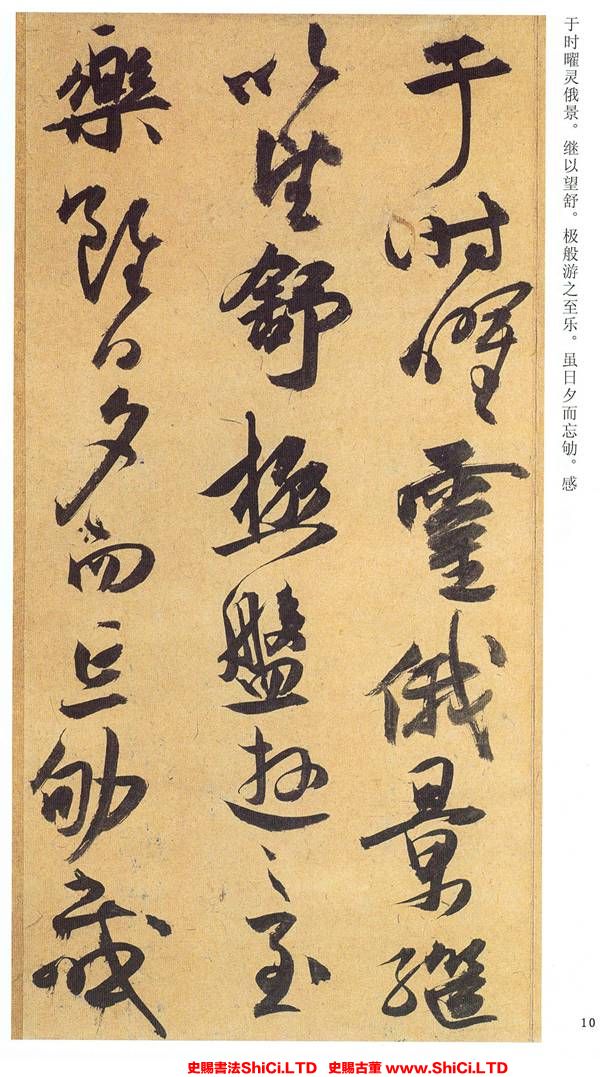 于时曜靈俄景繼
以望舒極盤遊之至
樂雖日夕而忘劬感
于时曜灵俄景。继以望舒。极般游之至乐。虽日夕而忘劬。感
10
史賜書法ShiCi.LTD 史賜古董 www.ShiCi.LTD